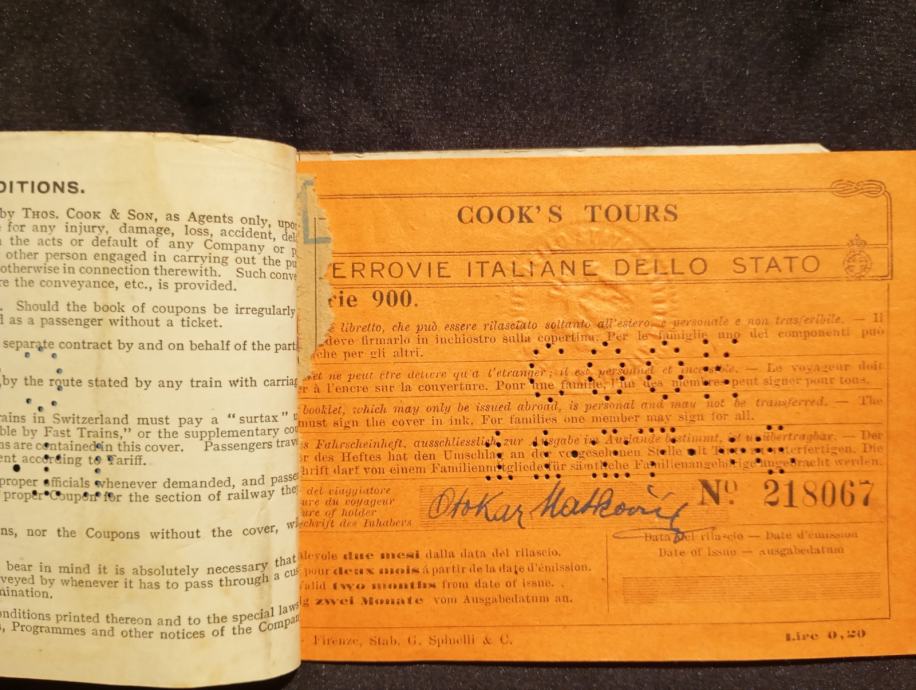 DITIONS.
by THOS. COOK & SON, as Agents only, upon
for any injury, damage, loss, accident, del
the acts or default of any Company or p
other person engaged in carrying out the pu
otherwise in connection therewith. Such conve
re the conveyance, etc., is provided.
Should the book of coupons be irregularly
d as a passenger without a ticket.
separate contract by and on behalf of the parti
by the route stated by any train with carriag
rains in Switzerland must pay a "surtax"
ble by Fast Trains," or the supplementary cou
ns are contained in this cover. Passengers trav
ent according to Tariff.
proper officials whenever demanded, and passe
proper Coupon for the section of railway they
ns, nor the Coupons without the cover, wi
bear in mind it is absolutely necessary that
veyed by whenever it has to pass through a cus
mination.
nditions printed thereon and to the special laws
s, Programmes and other notices of the Compan
L
COOK'S TOURS
FERROVIE ITALIANE DELLO STATO
rie 900.
libretto, che può essere rilasciato soltanto all'estero, è personale e non trasferibile. — Il
deve firmarlo in inchiostro sulla copertina. Per le famiglie uno dei componenti può
che per gli altri.
ret ne peut être délivré qu'à l'étranger; il est personnel et incessible. — Le voyageur doit
r à l'encre sur la couverture. Pour une famille, l'un des membres peut signer pour tous.
booklet, which may only be issued abroad, is personal and may not be transferred. — The
must sign the cover in ink. For families one member may sign for all.
s Fahrscheinheft, ausschliesslich zur Ausgabe im Auslande bestimmt, ist unübertragbar. — Der
or des Heftes hat den Umschlag an der vorgesehenen Stelle mit Tinte zu unterfertigen. Die
hrift darf von einem Familienmitgliede für sämtliche Familienangehörige angebracht werden.
del viaggiatore
ure du voyageur
ure of holder
schrift des Inhabers
Otokar Matković
Nº 218067
Data del rilascio — Date d'émission
Date of issue — ausgabedatum
alevole due mesi dalla data del rilascio.
pour deux mois à partir de la date d'émission.
alid two months from date of issue.
g zwei Monate vom Ausgabedatum an.
Firenze, Stab. G. Spinelli & C.
Lire 0,20